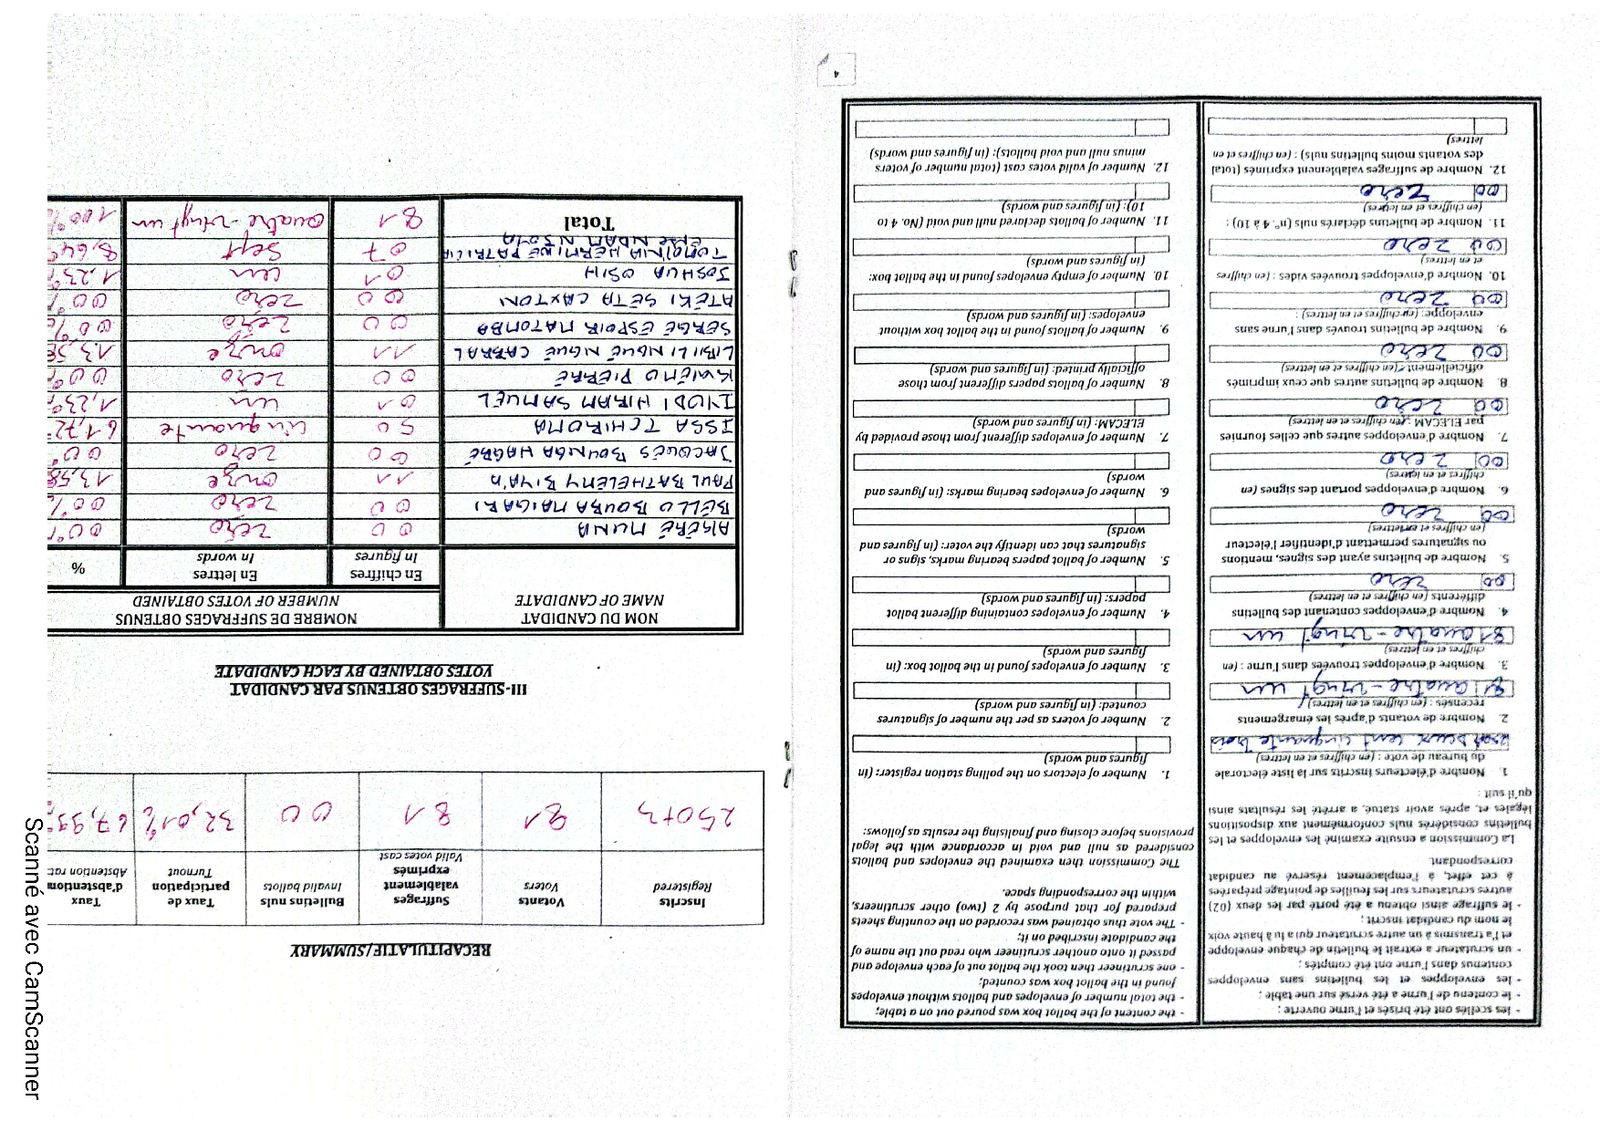 - les scellés ont été brisés et l'urne ouverte ;
- le contenu de l'urne a été versé sur une table ;
- les enveloppes et les bulletins sans enveloppes
contenus dans l'urne ont été comptés ;
- un scrutateur a extrait le bulletin de chaque enveloppe
et l'a transmis à un autre scrutateur qui a lu à haute voix
le nom du candidat inscrit ;
- le suffrage ainsi obtenu a été porté par les deux (02)
autres scrutateurs sur les feuilles de pointage préparées
à cet effet, à l'emplacement réservé au candidat
correspondant.
La Commission a ensuite examiné les enveloppes et les
bulletins considérés nuls conformément aux dispositions
légales et, après avoir statué, a arrêté les résultats ainsi
qu'il suit :
1. Nombre d'électeurs inscrits sur la liste électorale
du bureau de vote : (en chiffres et en lettres)
deux cent cinquante trois
2. Nombre de votants d'après les émargements
recensés : (en chiffres et en lettres)
81 quatre-vingt un
3. Nombre d'enveloppes trouvées dans l'urne : (en
chiffres et en lettres)
81 quatre-vingt un
4. Nombre d'enveloppes contenant des bulletins
différents (en chiffres et en lettres)
00 zéro
5. Nombre de bulletins ayant des signes, mentions
ou signatures permettant d'identifier l'électeur
(en chiffres et en lettres)
00 zero
6. Nombre d'enveloppes portant des signes (en
chiffres et en lettres)
00 zero
7. Nombre d'enveloppes autres que celles fournies
par ELECAM : (en chiffres et en lettres)
00 zero
8. Nombre de bulletins autres que ceux imprimés
officiellement (en chiffres et en lettres)
00 zéro
9. Nombre de bulletins trouvés dans l'urne sans
enveloppe: (en chiffres et en lettres) :
00 zero
10. Nombre d'enveloppes trouvées vides : (en chiffres
et en lettres)
00 zero
11. Nombre de bulletins déclarés nuls (n° 4 à 10) :
(en chiffres et en lettres)
00 zero
12. Nombre de suffrages valablement exprimés (total
des votants moins bulletins nuls) : (en chiffres et en
lettres)
- the content of the ballot box was poured out on a table;
- the total number of envelopes and ballots without envelopes
found in the ballot box was counted;
- one scrutineer then took the ballot out of each envelope and
passed it onto another scrutineer who read out the name of
the candidate inscribed on it;
- The vote thus obtained was recorded on the counting sheets
prepared for that purpose by 2 (two) other scrutineers,
within the corresponding space.
The Commission then examined the envelopes and ballots
considered as null and void in accordance with the legal
provisions before closing and finalising the results as follows:
1. Number of electors on the polling station register: (in
figures and words)
2. Number of voters as per the number of signatures
counted: (in figures and words)
3. Number of envelopes found in the ballot box: (in
figures and words)
4. Number of envelopes containing different ballot
papers: (in figures and words)
5. Number of ballot papers bearing marks, signs or
signatures that can identify the voter: (in figures and
words)
6. Number of envelopes bearing marks: (in figures and
words)
7. Number of envelopes different from those provided by
ELECAM: (in figures and words)
8. Number of ballots papers different from those
officially printed: (in figures and words)
9. Number of ballots found in the ballot box without
envelopes: (in figures and words)
10. Number of empty envelopes found in the ballot box:
(in figures and words)
11. Number of ballots declared null and void (No. 4 to
10): (in figures and words)
12. Number of valid votes cast (total number of voters
minus null and void ballots): (in figures and words)
4
RECAPITULATIF/SUMMARY
Inscrits Registered | Votants Voters | Suffrages valablement exprimés Valid votes cast | Bulletins nuls Invalid ballots | Taux de participation Turnout | Taux d'abstention Abstention rat
81 | 81 | 00 | 32,01%
III-SUFFRAGES OBTENUS PAR CANDIDAT
VOTES OBTAINED BY EACH CANDIDATE
NOM DU CANDIDAT NOMBRE DE SUFFRAGES OBTENUS
NAME OF CANDIDATE NUMBER OF VOTES OBTAINED
En chiffres En lettres %
In figures In words
AKÉRÉ MUNA 00 zéro 00%
BÉLLO BOUBA MAIGARI 00 zéro 00%
PAUL BATHELEMY BIYA'A 11 onze 13,58
JACQUES BOUNGA HAGBÉ 00 zéro 00%
ISSA TCHIROMA 50 cinquante 61,72
IYODI HIRAM SAMUEL 01 un 1,23%
KWEMO PIERRE 00 zéro 00%
LIBII LI NGUÉ NGUÉ CABRAL 11 onze 13,58
SERGE ESPOIR MATOMBA 00 zéro 00%
ATEKI SETA CAXTON 00 zéro 00%
JOSHUA OSIH 01 un 1,23%
TOMAINA HERMINE PATRICIA
EPSE NDAM NJOYA 07 sept 8,64%
Total 81 quatre-vingt un 100%
Scanné avec CamScanner